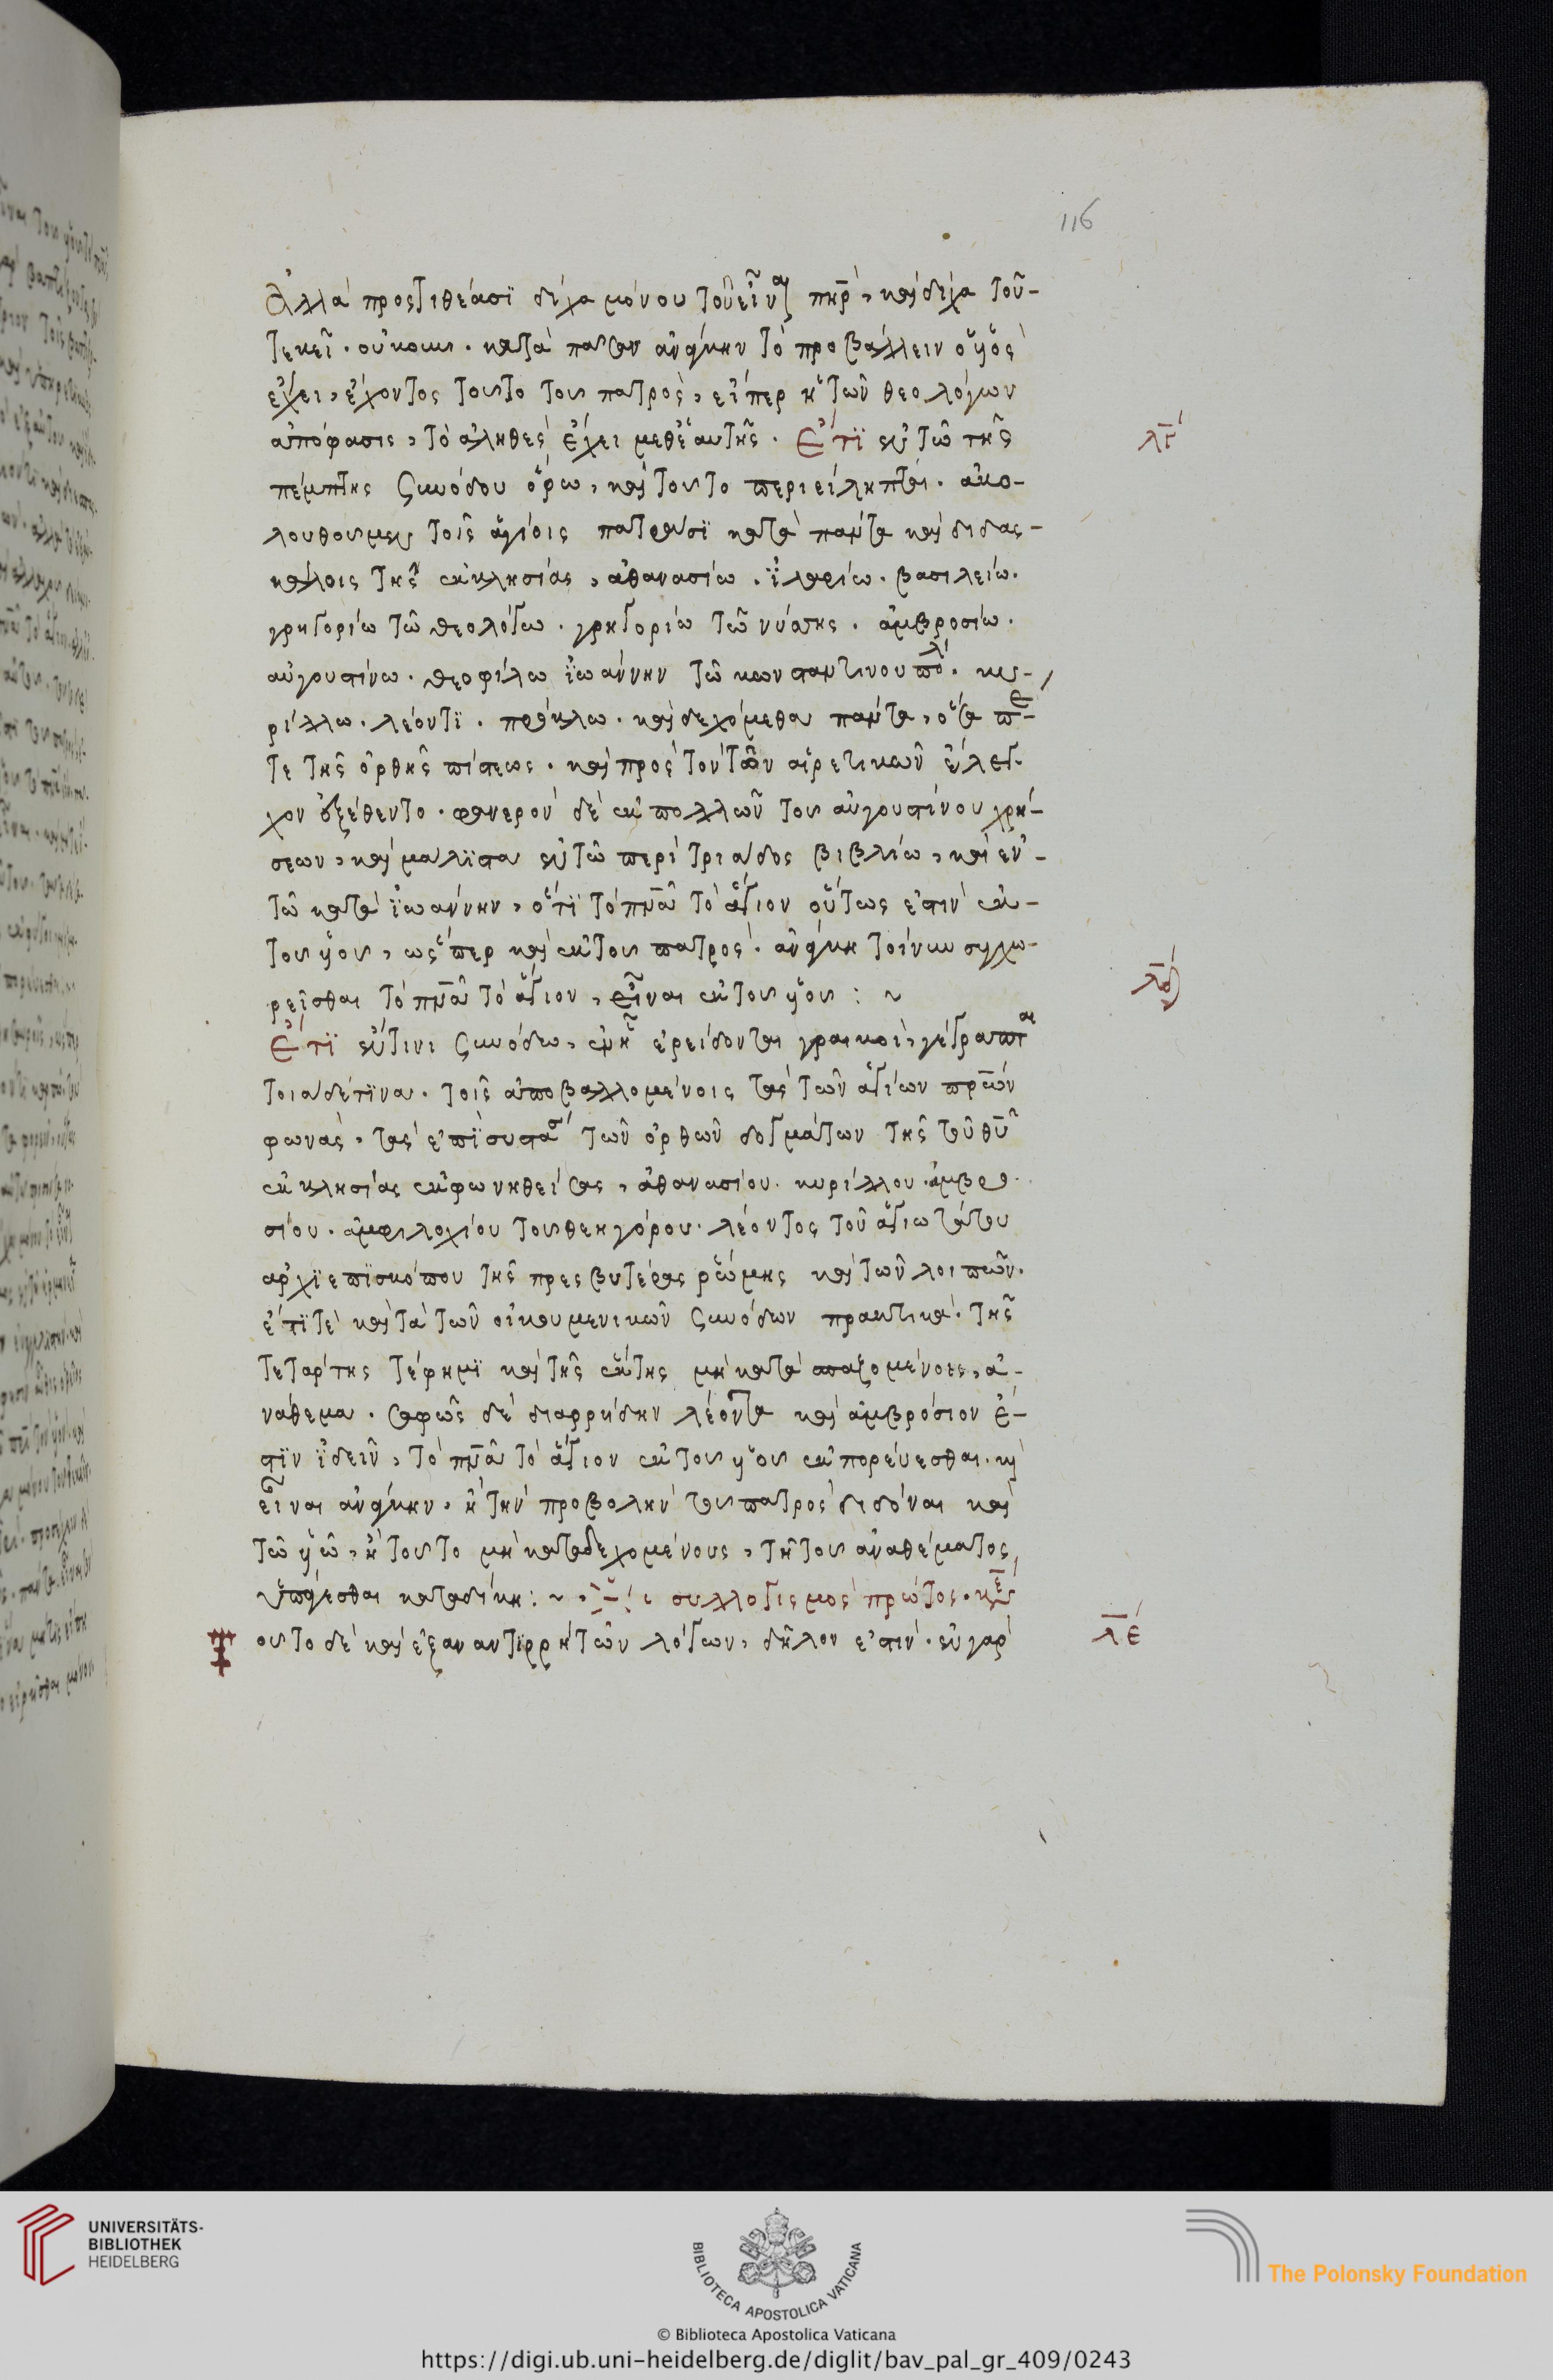 116
Ἀλλὰ προςτιθέασϊ δίχα μόνου τοῦ εἶναι πηρ, καὶ δίχα τοῦ-
τεκεῖ. οὐκοων. κατὰ πασαν ἀνάγκην τὸ προβάλλειν ὁ ὑὸς
ἔχει, ἔχοντος τουτο του πατρὸς, εἴπερ ἡ τῶν θεολόγων
ἀπόφασις, τὸ ἀληθὲς ἔχει μεθ ἑαυτῆς. Ἔτϊ ἐν τῶ τῆς
λγ
πέμπτης συνόδου ὅρω, καὶ τουτο περιείληπται. ἀκο-
λουθουμεν τοῖς ἁγίοις πατράσϊ κατὰ πάντα καὶ διδας-
κάλοις τῆς ἐκκλησίας, ἀθανασίω. ϊλαρίω. βασιλείω.
γρηγορίω τῶ θεολόγω. γρηγορίω τῶ νύσης. ἀμβροσίω.
αὐγουστίνω. θεοφίλω ϊωάννην τῶ κωνσταντινουπόλ. κυ-
ρίλλω. λέοντϊ. πρόκλω. καὶ δεχόμεθα πάντα, ὅσα περ-
τε τῆς ὀρθῆς πίστεως. καὶ πρὸς τὸν τῶν αἱρετικῶν ἔλεγ-
χον ἐξέθεντο. φανερὸν δὲ ἐκ πολλῶν του αὐγουστίνου χρή-
σεων, καὶ μαλϊστα ἐν τῶ περὶ τριάδος βιβλίω, καὶ ἐν-
τῶ κατὰ ϊωάννην, ὅτϊ τὸ πνα τὸ ἅγιον οὕτως ἐστὶν ἐκ-
του ὑου, ὡς περ καὶ ἐκ του πατρὸς. ἀνάγκη τοίνυν συγχω-
λδ
ρεῖσθαι τὸ πνα τὸ ἅγιον, εἶναι ἐκ του ὑου : ~
Ἔτϊ ἔν τινι συνόδω, ἐν ἧ ἐρείδονται γραικοὶ, γέγραπται
τοιάδέ τϊνα. τοῖς ἀποβαλλομένοις τὰς τῶν ἁγίων πρων
φωνὰς, τὰς ἐπϊ συστά τῶν ὀρθῶν δογμάτων τῆς τοῦ θυ
ἐκκλησίας ἐκφωνηθείσας, ἀθανασίου. κυρίλλου. ἀμβρο-
σίου. ἀμφιλοχίου του θεηγόρου. λέοντος τοῦ ἁγιωτάτου
ἀρχϊεπϊσκόπου τῆς πρεσβυτέρας ῥώμης καὶ τῶν λοιπῶν.
ἔτϊ τὲ καὶ τὰ τῶν οἰκουμενικῶν συνόδων πρακτικὰ. τῆς
τετάρτης τέ φημϊ καὶ τῆς ἕκτης μὴ κατὰ σπαζομένοις, ἀ-
νάθεμα. σαφῶς δὲ διαρρήδην λέοντα καὶ ἀμβρόσιον ἔ-
στϊν ϊδεῖν, τὸ πνα τὸ ἅγιον ἐκ του ὑου ἐκπορέυεσθαι. καὶ
εἶναι ἀνάγκην. ἢ τὴν προβολὴν του πατρὸς διδόναι καὶ
τῶ ὑῶ, ἢ τουτο μὴ καταδεχομένους, τῆ του ἀναθέματος,
ὑπάγεσθαι καταδίκη : ~ συλλογισμὸς πρῶτος.
Τ
ουτο δὲ καὶ ἐξ αναντϊρρήτων λόγων, δῆλον ἐστὶν. εἰ γὰρ
λε
UNIVERSITÄTS-
BIBLIOTHEK
HEIDELBERG
BIBLIOTECA APOSTOLICA VATICANA
The Polonsky Foundation
© Biblioteca Apostolica Vaticana
https://digi.ub.uni-heidelberg.de/diglit/bav_pal_gr_409/0243